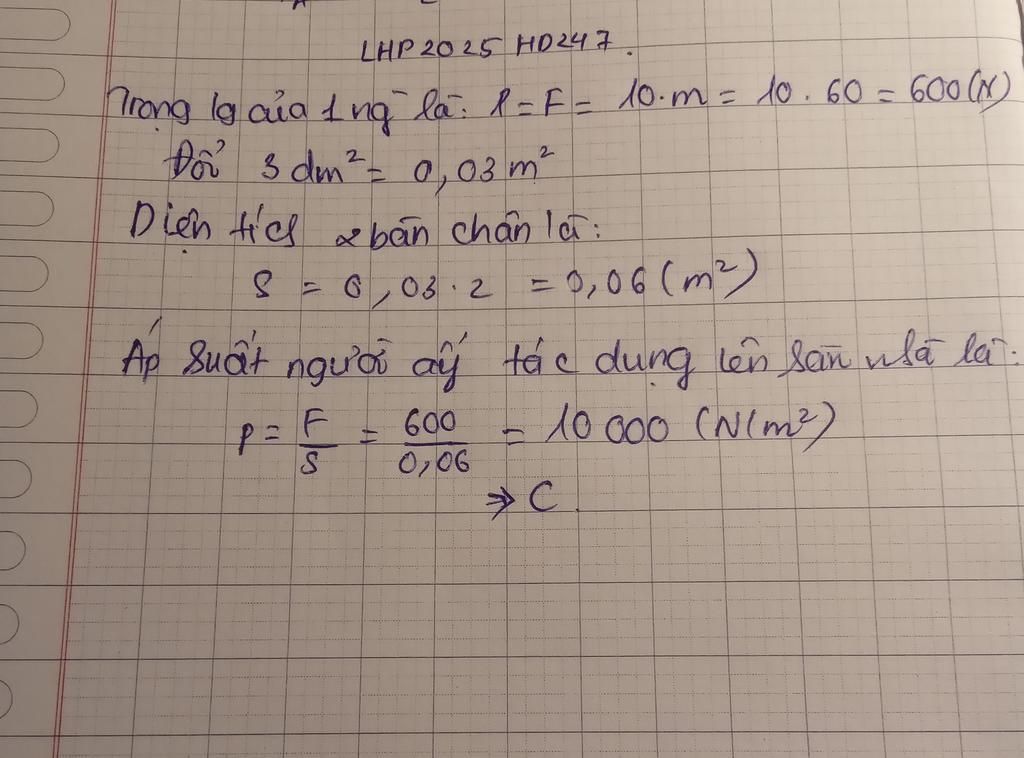 LHP2025 HD247.
Trọng lg của 1 ng̀ là: P = F = 10.m = 10 . 60 = 600(N)
Đổi 3 dm² = 0,03 m²
Diện tích 2 bàn chân là:
S = 0,03 . 2 = 0,06 (m²)
Áp suất người ấy tác dụng lên sàn nhà là:
p = F/S = 600/0,06 = 10 000 (N/m²)
⇒ C.